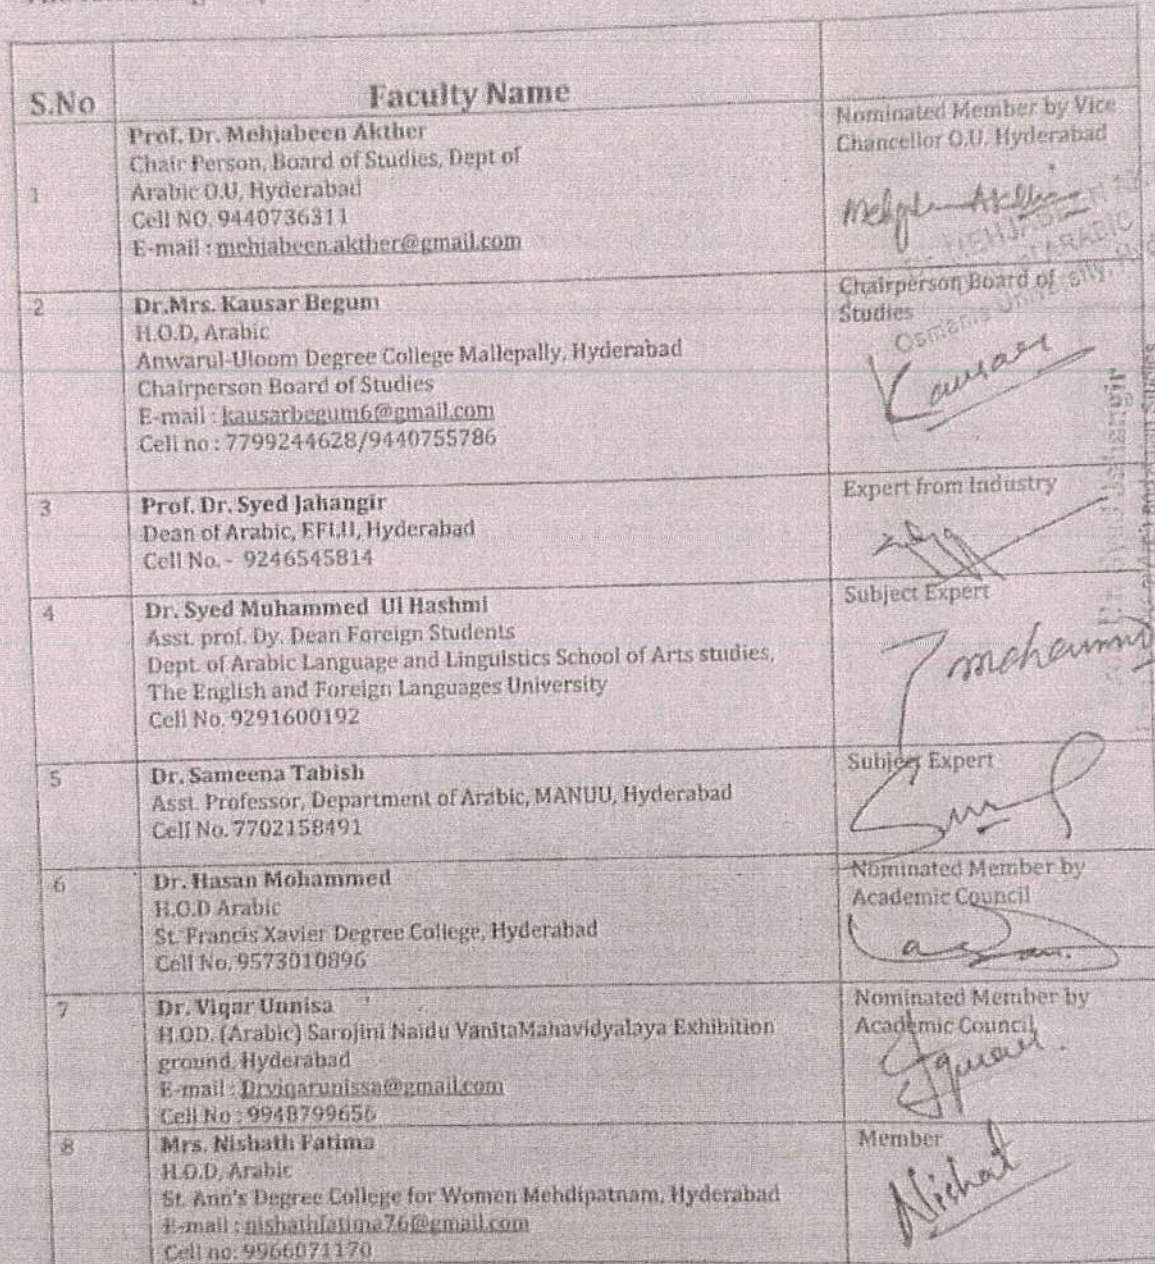 S.No
Faculty Name
1
Prof. Dr. Mehjabeen Akther
Chair Person, Board of Studies, Dept of
Arabic O.U, Hyderabad
Cell NO. 9440736311
E-mail : mehjabeen.akther@gmail.com
Nominated Member by Vice
Chancellor O.U. Hyderabad
2
Dr.Mrs. Kausar Begum
H.O.D, Arabic
Anwarul-Uloom Degree College Mallepally, Hyderabad
Chairperson Board of Studies
E-mail : kausarbegum6@gmail.com
Cell no : 7799244628/9440755786
Chairperson Board of
Studies
Kausar
3
Prof. Dr. Syed Jahangir
Dean of Arabic, EFLU, Hyderabad
Cell No. - 9246545814
Expert from Industry
4
Dr. Syed Muhammed Ul Hashmi
Asst. prof. Dy. Dean Foreign Students
Dept. of Arabic Language and Linguistics School of Arts studies,
The English and Foreign Languages University
Cell No. 9291600192
Subject Expert
5
Dr. Sameena Tabish
Asst. Professor, Department of Arabic, MANUU, Hyderabad
Cell No. 7702158491
Subject Expert
6
Dr. Hasan Mohammed
H.O.D Arabic
St. Francis Xavier Degree College, Hyderabad
Cell No. 9573010896
Nominated Member by
Academic Council
7
Dr. Viqar Unnisa
H.OD. (Arabic) Sarojini Naidu VanitaMahavidyalaya Exhibition
ground, Hyderabad
E-mail : Drviqarunissa@gmail.com
Cell No : 9948799656
Nominated Member by
Academic Council
8
Mrs. Nishath Fatima
H.O.D, Arabic
St. Ann's Degree College for Women Mehdipatnam, Hyderabad
E-mail : nishathfatima76@gmail.com
Cell no: 9966071170
Member
Nishat